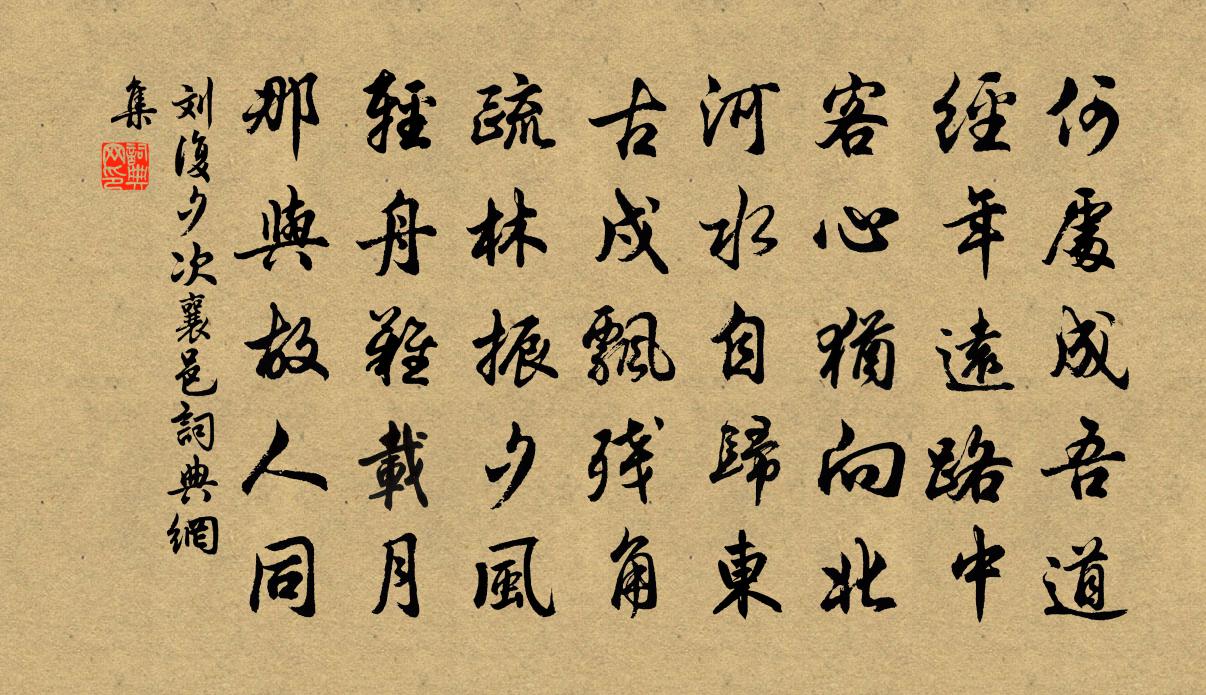 何處成吾道
經年遠路中
客心猶向北
河水自歸東
古戍飄残角
疏林振夕風
輕舟難載月
那與故人同
刘復夕次襄邑詞典網
集
詞典網印